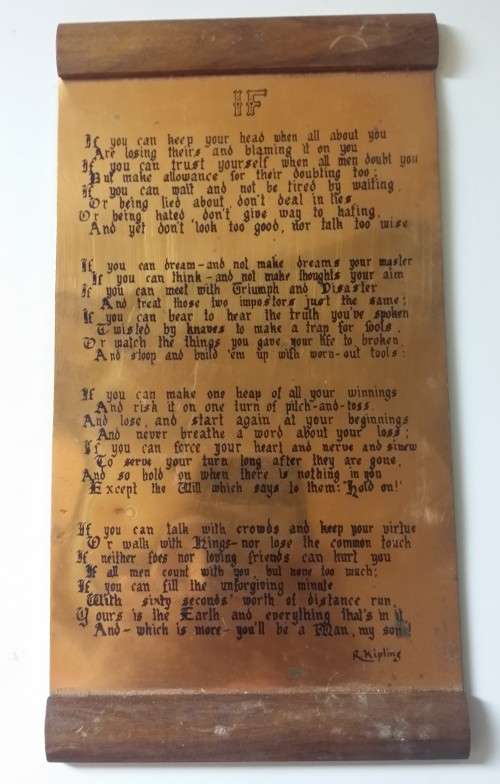 IF
If you can keep your head when all about you
Are losing theirs and blaming it on you
If you can trust yourself when all men doubt you
But make allowance for their doubting too;
If you can wait and not be tired by waiting.
Or being lied about, don't deal in lies
Or being hated, don't give way to hating,
And yet don't look too good, nor talk too wise
If you can dream-and not make dreams your master
If you can think-and not make thoughts your aim
If you can meet with Triumph and Disaster
And treat those two impostors just the same;
If you can bear to hear the truth you've spoken
Twisted by knaves to make a trap for fools,
Or watch the things you gave your life to broken,
And stoop and build 'em up with worn-out tools:
If you can make one heap of all your winnings
And risk it on one turn of pitch-and-toss.
And lose, and start again at your beginnings
And never breathe a word about your loss;
If you can force your heart and nerve and sinew
To serve your turn long after they are gone,
And so hold on when there is nothing in you
Except the Will which says to them: "Hold on!"
If you can talk with crowds and keep your virtue
Or walk with Kings-nor lose the common touch
If neither foes nor loving friends can hurt you
If all men count with you, but none too much;
If you can fill the unforgiving minute
With sixty seconds' worth of distance run,
Yours is the Earth and everything that's in it
And-which is more-you'll be a Man, my son
R. Kipling